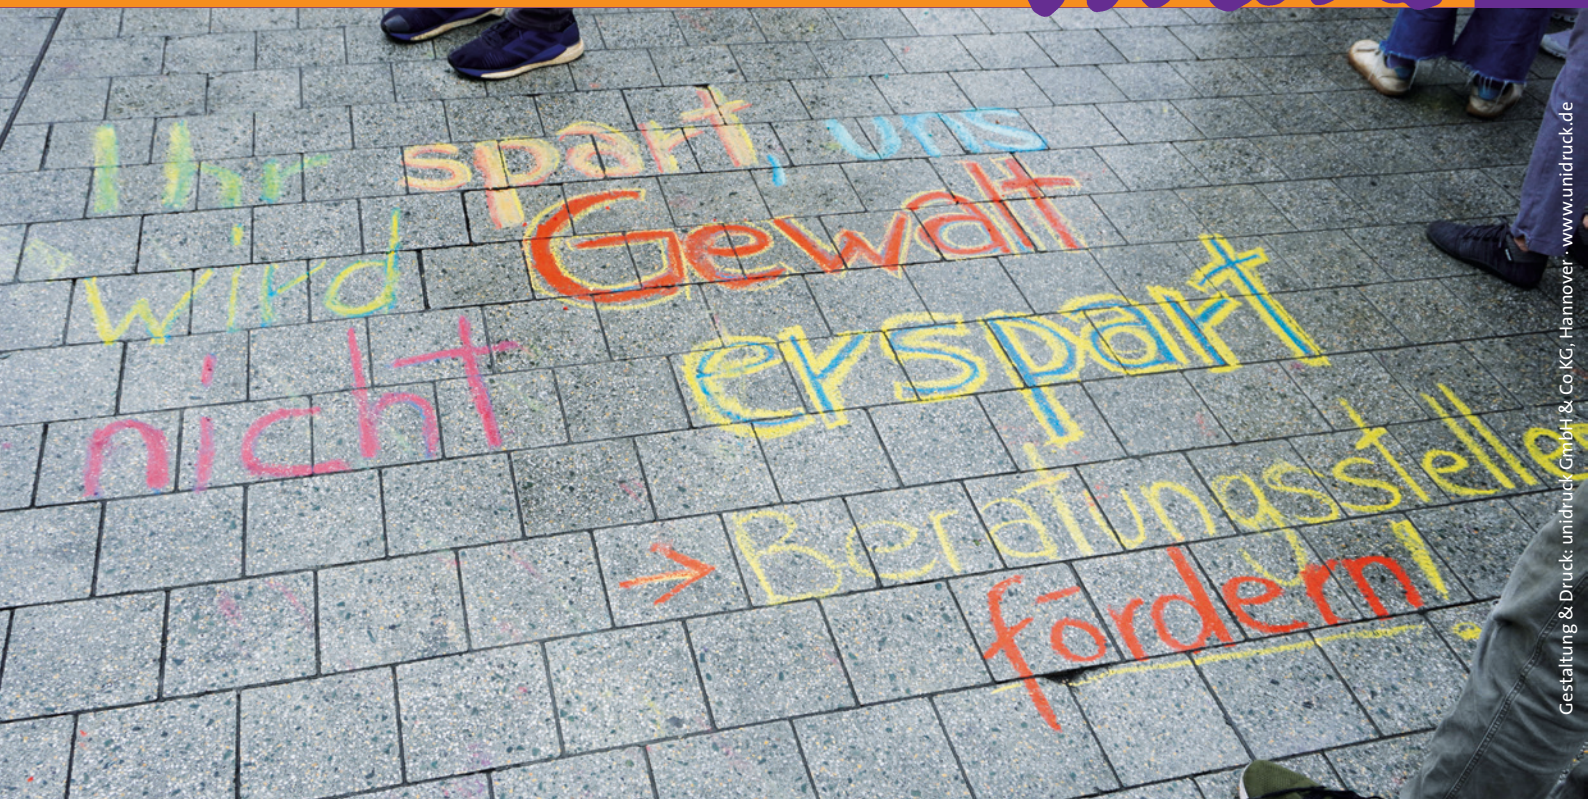 Ihr spart, uns
wird Gewalt
nicht erspart
→ Beratungsstelle
fördern!
Gestaltung & Druck: unidruck GmbH & Co KG, Hannover · www.unidruck.de